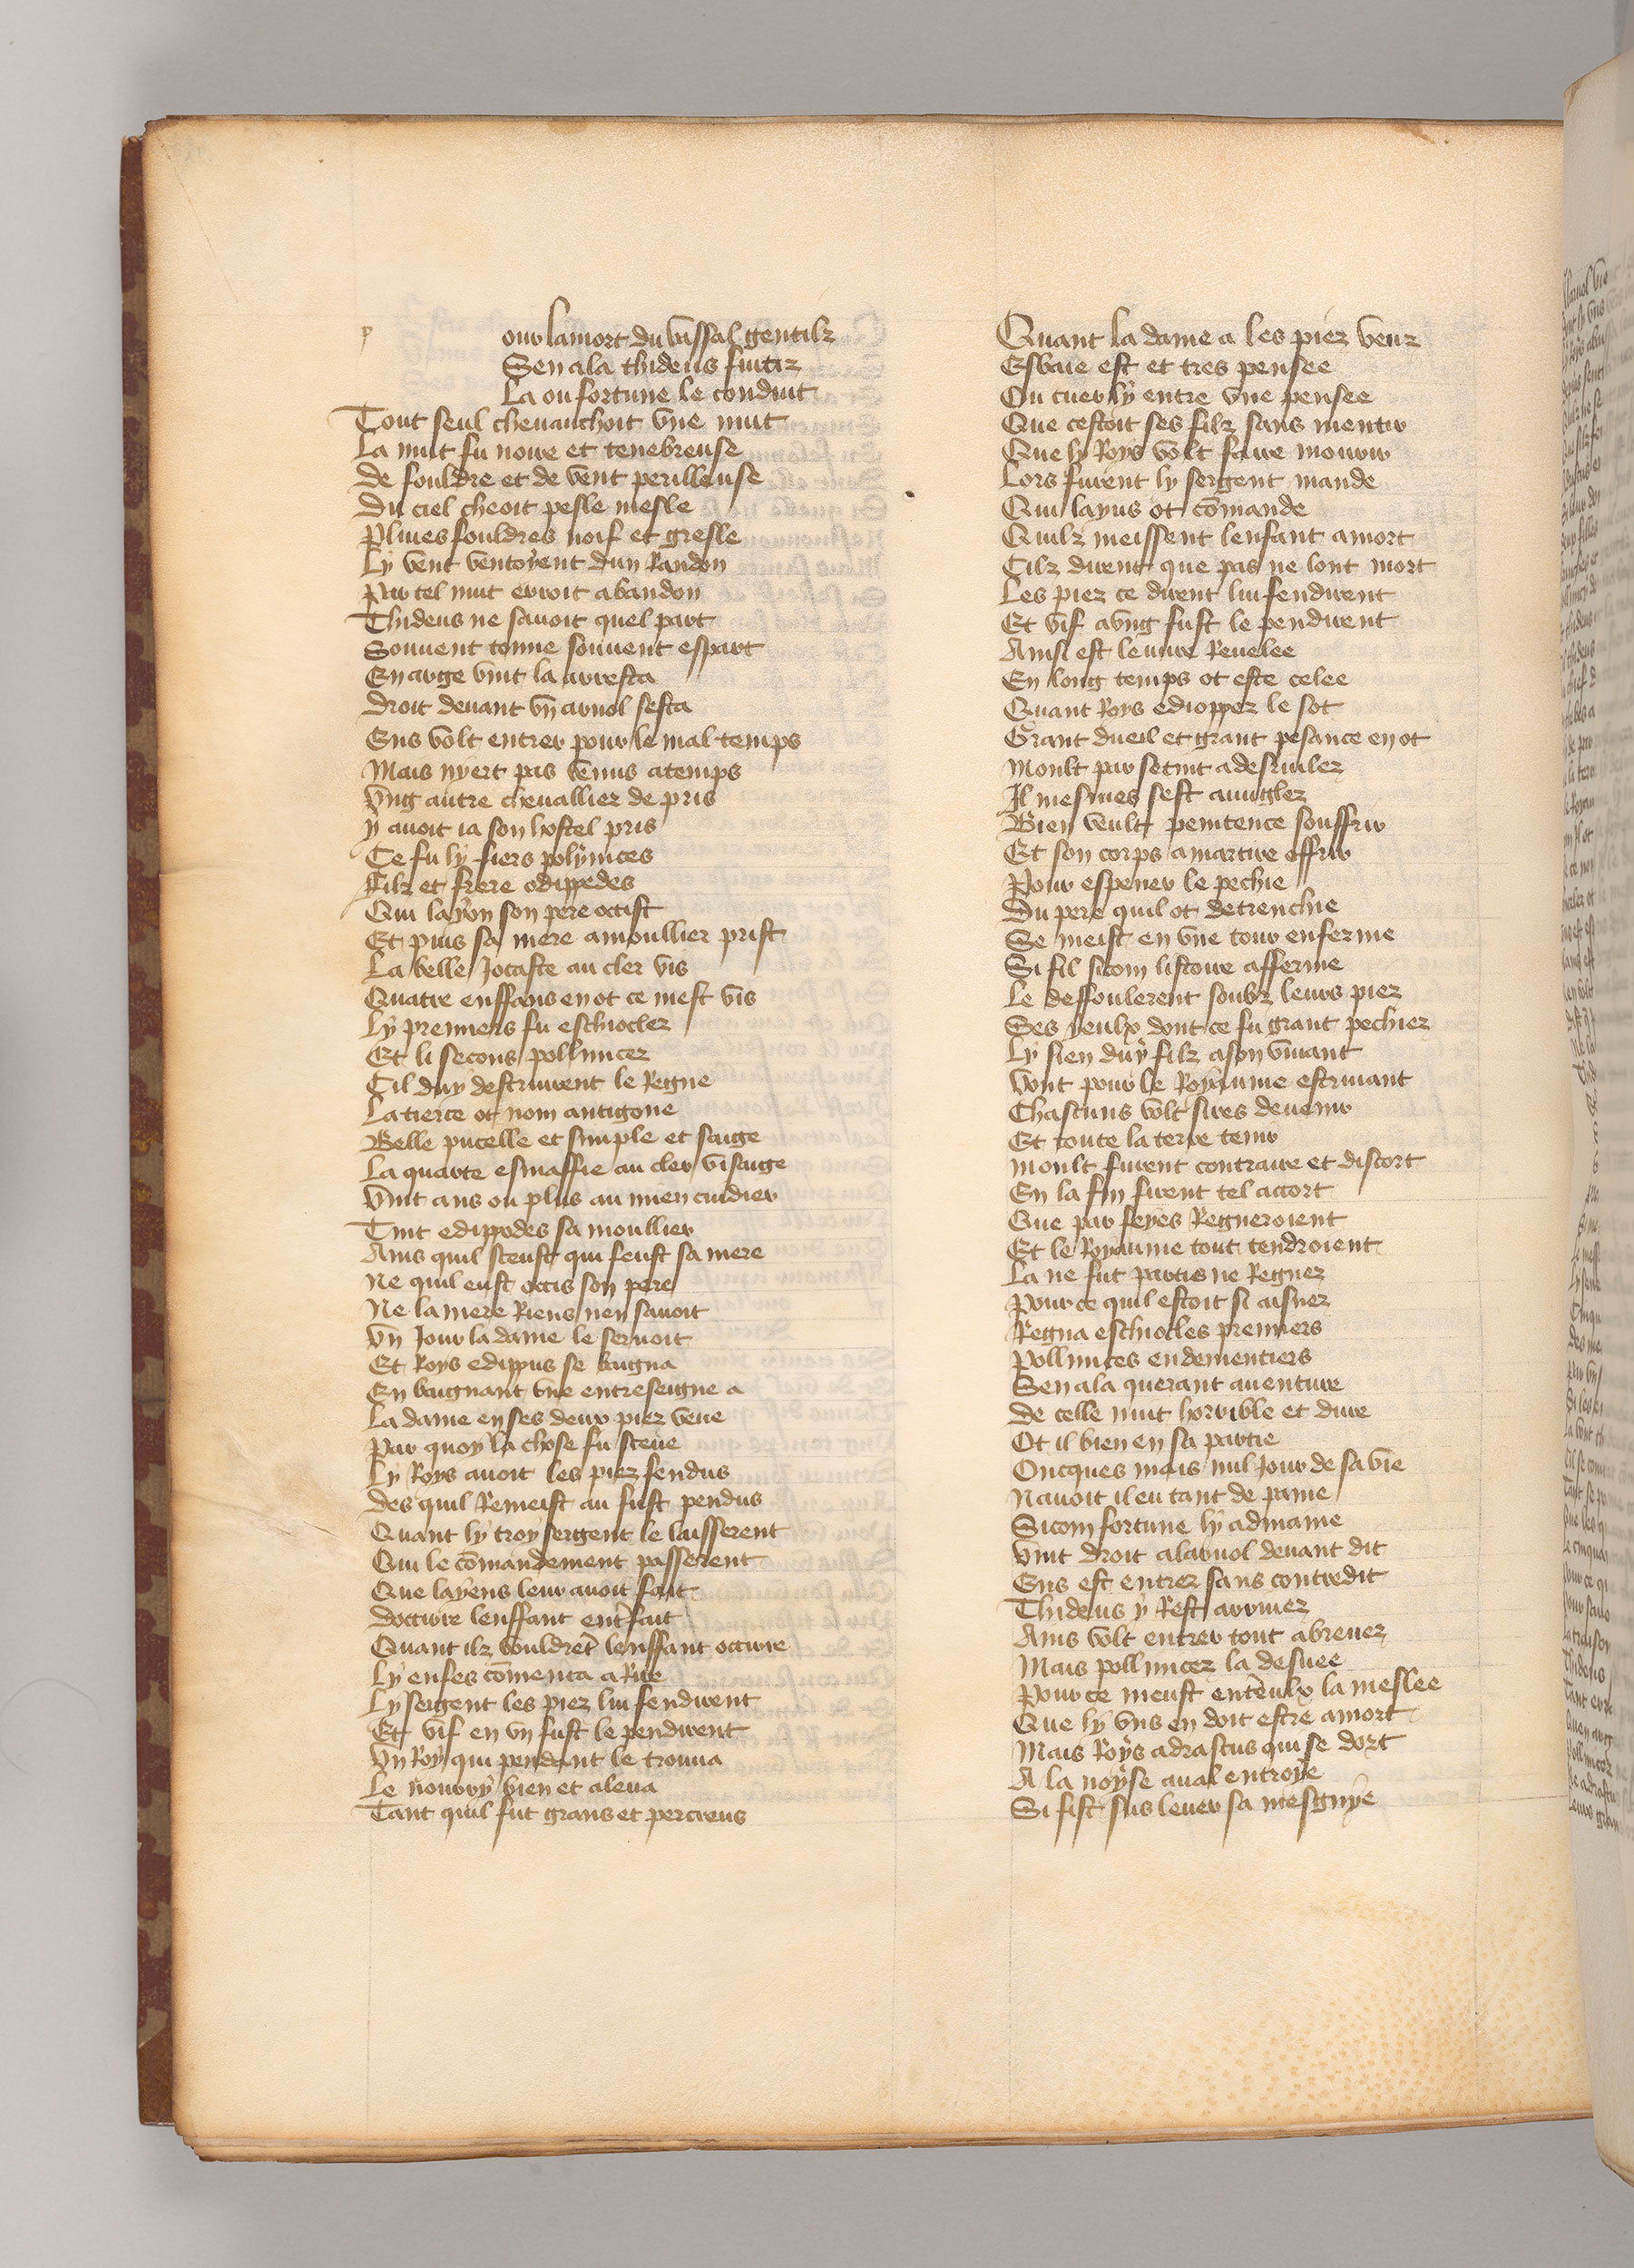 p
our lamort du vassal gentilz
Sen ala thideus fuitiz
La ou fortune le conduit
Tout seul cheuauchoit vne nuit
La nuit fu noire et tenebreuse
de fouldre et de vent perilleuse
Du ciel cheoit pesle mesle
Pluies fouldres noif et gresle
Ly vent ventoyent dun Randon
Par tel nuit erroit abandon
Thideus ne sauoit quel part
Souuent tonne souuent espart
En arge vint la arresta
droit deuant vn aruol sesta
Ens volt entrer pour le mal temps
Mais nyert pas venus atemps
Vng autre cheuallier de pris
y auoit ia son hostel pris
Ce fu ly fiers polynices
Filz et frere odippedes
Qui layon son pere occist
Et puis sa mere amoullier prist
La belle Jocaste au cler vis
Quatre enffans en ot ce mest vis
Ly premiers fu ethiocler
Et li secons pollinicez
Cil duy destruirent le Regne
La tierce ot nom antigone
Belle pucelle et simple et saige
La quarte esmaffie au cler visaige
Vint ans ou plus au mien cuidier
Tint edippodes sa moullier
Ains quil sceust qui feust sa mere
Ne quil eust occis son pere
Ne la mere Riens nen sauoit
Vn Jour la dame le seruoit
Et Roys edippus se baigna
En baignant vne entreseigne a
La dame en ses deux piez veue
Par quoy la chose fu sceue
Ly Roys auoit les piez fendus
des quil Remeist au fust pendus
Quant ly troy sergent le laisserent
Qui le cōmandement passerent
Que layens leur auoit fait
doccirre lenffant entfait
Quant ilz vouldrēt lenffant occire
Ly enfes cōmenca a Rire
Ly sergent les piez lui fendirent
Et vif en vn fust le pendirent
Vn Roy qui pendant le trouua
Le nourry bien et aleua
Tant quil fut grans et percreus
Quant la dame a les piez veuz
Esbaie est et tres pensee
Ou cuer ly entre vne pensee
Que cestoit ses filz sans mentir
Que ly Roys volt faire mourir
Lors furent ly sergent mande
Qui layus ot cōmande
Quilz meissent lenfant amort
Cilz dirent que pas ne lont mort
Les piez ce dirent lui fendirent
Et vif a vng fust le pendirent
Ainsi est leuure Reuelee
En long temps ot este celee
Quant Roys edioppez le sot
Grant dueil et grant pesance en ot
Moult par se tint a desriulez
Il mesmes sest auuglez
Bien veult penitence souffrir
Et son corps amartire offrir
Pour espener le pechie
Du pere quil ot detrenchie
Se meist en vne tour enferme
Si fil sicom listoire afferme
Le deffoulerent soubz leurs piez
Ses yeulx dont ce fu grant pechiez
Ly sien duy filz ason viuant
Vont pour le Royaume estriuant
Chascuns volt sires deuenir
Et toute la terre tenir
Moult furent contraire et discort
En la fin firent tel accort
Que par feyes Regneroient
Et le Royaume tout tendroient
La ne fut partis ne Regnez
Pour ce quil estoit si aisnez
Regna ethiocles premiers
Pollinices endementiers
Sen ala querant auenture
De celle nuit horrible et dure
Ot il bien en sa partie
Oncques mais nul Jour de sa vie
Nauoit il eu tant de paine
Sicom fortune ly admaine
Vint droit alaruol deuant dit
Ens est entrez sans contredit
Thideus y Rest arriuez
Ains volt entrer tout abreuez
Mais pollinicez la desuee
Pour ce meust enteulx la meslee
Que ly vns en doit estre amort
Mais Roys adrastus qui se dort
A la noyse aual entroye
Si fist sus leuer sa mesgnye